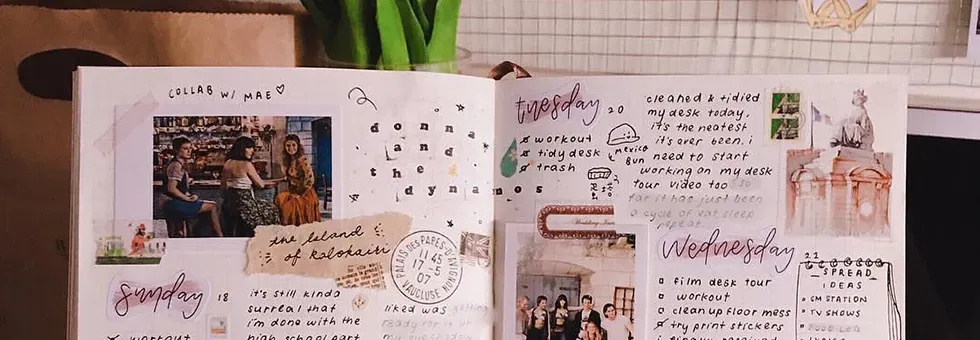 COLLAB W/ MAE
donna
and
the
dynamos
the Island
of kalokairi
PALAIS DES PAPES-D'AVIGNON
11 45
17-5
07
VAUCLUSE
sunday 18
workout
it's still kinda
surreal that
i'm done with the
high school part
liked was getting
ready for it
tuesday 20
workout
tidy desk
trash
mexico
bun
cleaned & tidied
my desk today,
it's the neatest
it's ever been. i
need to start
working on my desk
tour video too so
far it has just been
a cycle of eat sleep
repeat.
wednesday 21
film desk tour
workout
clean up floor mess
try print stickers
i finally received
SPREAD
IDEAS
CM STATION
TV SHOWS
FOOD LOG